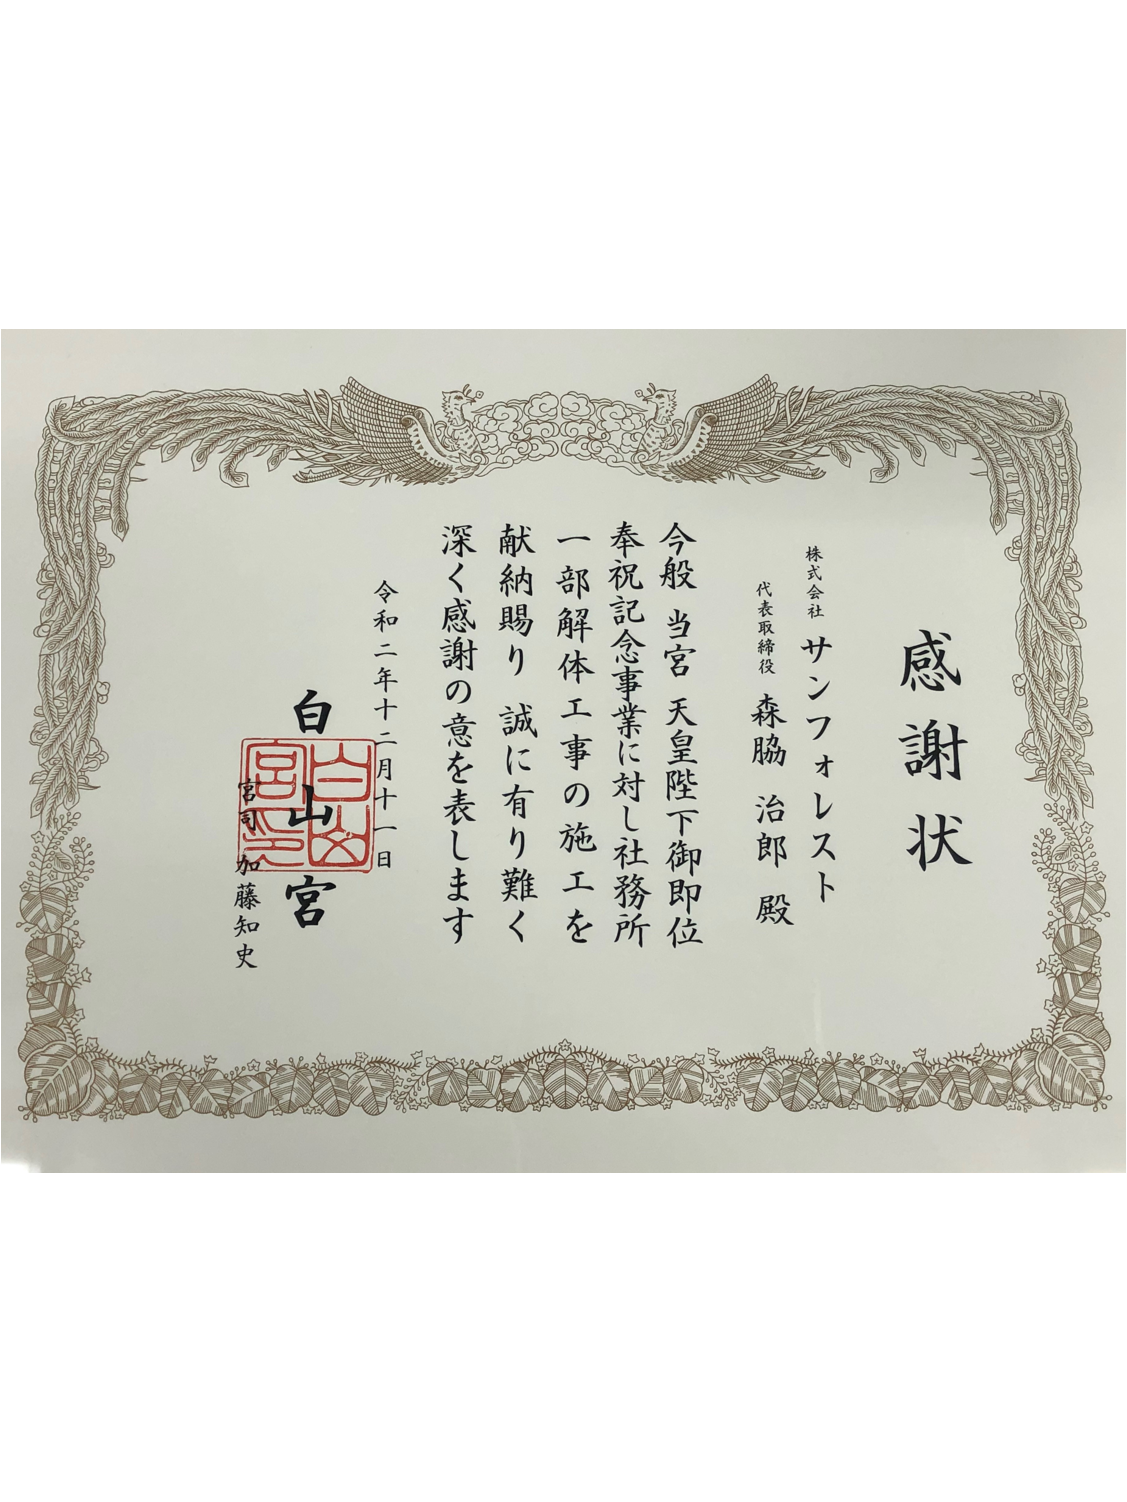 感謝状
株式会社 サンフォレスト
代表取締役 森脇 治郎 殿
今般 当宮 天皇陛下御即位
奉祝記念事業に対し社務所
一部解体工事の施工を
献納賜り 誠に有り難く
深く感謝の意を表します
令和二年十二月十一日
白山宮
白山宮印
宮司 加藤知史